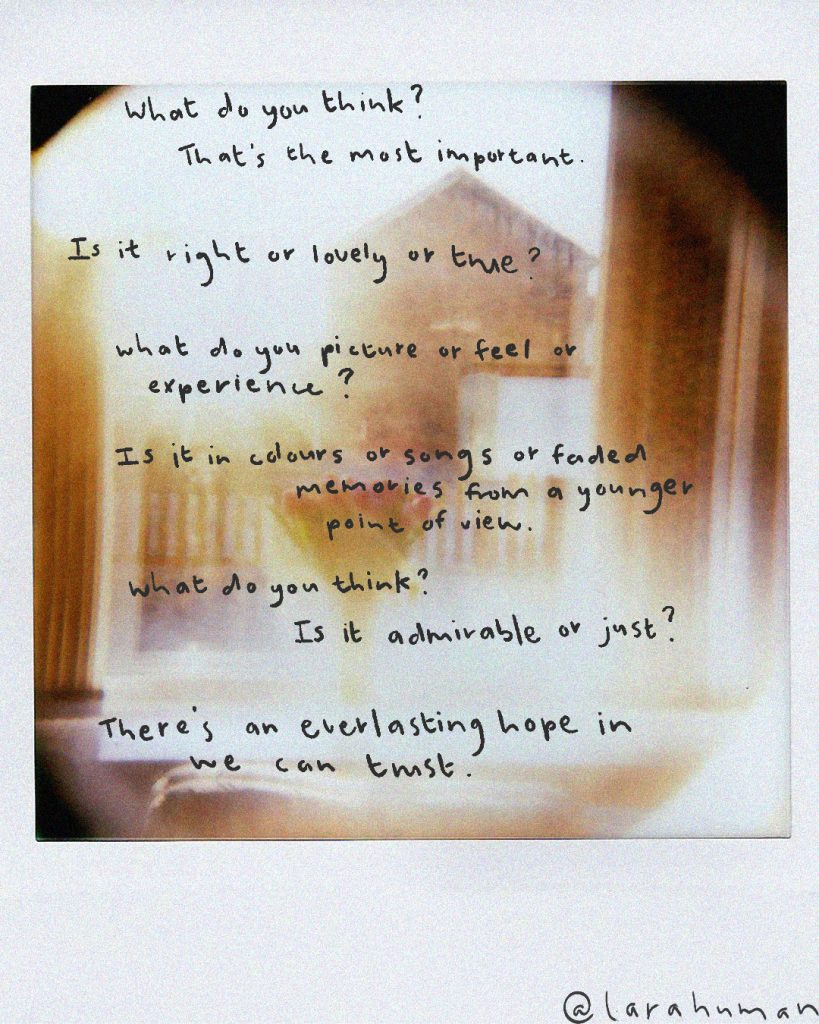 What do you think?
That's the most important.
Is it right or lovely or true?
what do you picture or feel or
experience?
Is it in colours or songs or faded
memories from a younger
point of view.
What do you think?
Is it admirable or just?
There's an everlasting hope in
we can trust.
@larahuman